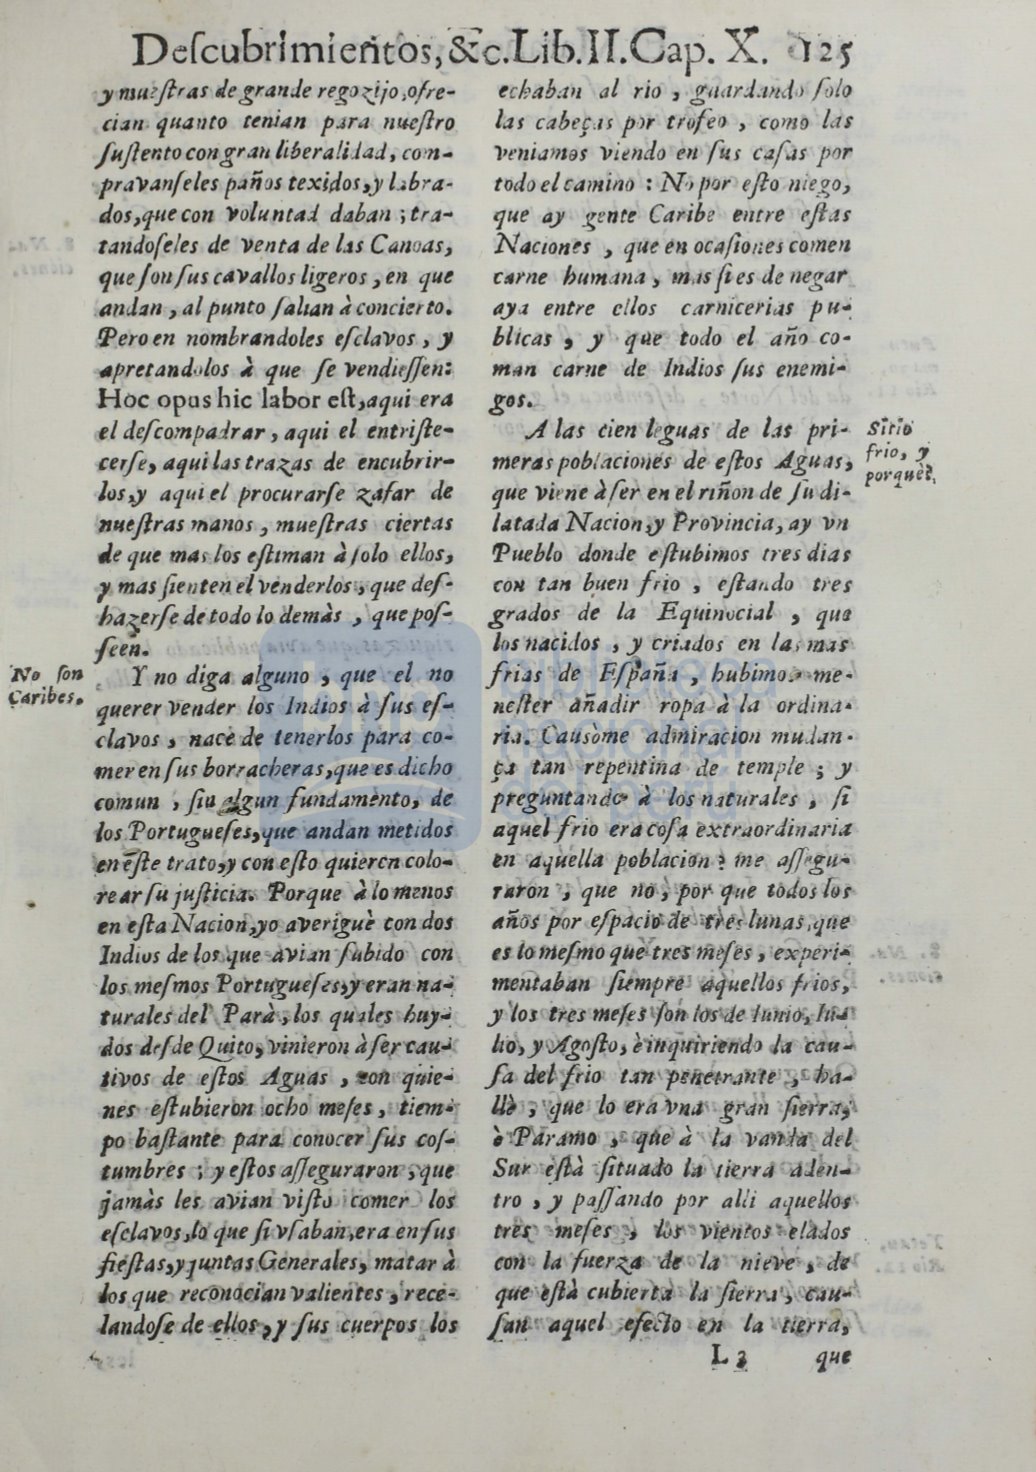 Deſcubrimientos, &c. Lib. II. Cap. X. 125
y mueſtras de grande regozijo, ofre-
cian quanto tenian para nueſtro
ſuſtento con gran liberalidad, com-
pravanſeles paños texidos, y labra-
dos, que con voluntad daban; tra-
tandoſeles de venta de las Canoas,
que ſon ſus cavallos ligeros, en que
andan, al punto ſalian à concierto.
Pero en nombrandoles eſclavos, y
apretandolos à que ſe vendieſſen:
Hoc opus hic labor eſt, aqui era
el deſcompadrar, aqui el entriſte-
cerſe, aqui las trazas de encubrir-
los, y aqui el procurarſe zafar de
nueſtras manos, mueſtras ciertas
de que mas los eſtiman à ſolo ellos,
y mas ſienten el venderlos, que deſ-
hazerſe de todo lo demàs, que poſ-
ſeen.
No ſon
Caribes.
Y no diga alguno, que el no
querer vender los Indios à ſus eſ-
clavos, nace de tenerlos para co-
mer en ſus borracheras, que es dicho
comun, ſin algun fundamento, de
los Portugueſes, que andan metidos
en eſte trato, y con eſto quieren colo-
rear ſu juſticia. Porque à lo menos
en eſta Nacion, yo averiguè con dos
Indios de los que avian ſubido con
los meſmos Portugueſes, y eran na-
turales del Parà, los quales huy-
dos deſde Quito, vinieron à ſer cau-
tivos de eſtos Aguas, con quie-
nes eſtubieron ocho meſes, tiem-
po baſtante para conocer ſus coſ-
tumbres; y eſtos aſſeguraron, que
jamàs les avian viſto comer los
eſclavos, lo que ſi vſaban, era en ſus
fieſtas, y juntas Generales, matar à
los que reconocian valientes, rece-
landoſe de ellos, y ſus cuerpos los
echaban al rio, guardando ſolo
las cabeças por trofeo, como las
veniamos viendo en ſus caſas por
todo el camino: No por eſto niego,
que ay gente Caribe entre eſtas
Naciones, que en ocaſiones comen
carne humana, mas ſi es de negar
aya entre ellos carnicerias pu-
blicas, y que todo el año co-
man carne de Indios ſus enemi-
gos.
Sitio
frio, y
porquè?.
A las cien leguas de las pri-
meras poblaciones de eſtos Aguas,
que viene à ſer en el riñon de ſu di-
latada Nacion, y Provincia, ay vn
Pueblo donde eſtubimos tres dias
con tan buen frio, eſtando tres
grados de la Equinocial, que
los nacidos, y criados en las mas
frias de Eſpaña, hubimos me-
neſter añadir ropa à la ordina-
ria. Causòme admiracion mudan-
ça tan repentina de temple; y
preguntando à los naturales, ſi
aquel frio era coſa extraordinaria
en aquella poblacion? me aſſegu-
raron, que no, por que todos los
años por eſpacio de tres lunas, que
es lo meſmo que tres meſes, experi-
mentaban ſiempre aquellos frios,
y los tres meſes ſon los de Iunio, Iu-
lio, y Agoſto, è inquiriendo la cau-
ſa del frio tan penetrante, ha-
llè, que lo era vna gran ſierra,
ò Paramo, que à la vanda del
Sur eſtà ſituado la tierra aden-
tro, y paſſando por alli aquellos
tres meſes, los vientos elados
con la fuerza de la nieve, de
que eſtà cubierta la ſierra, cau-
ſan aquel efecto en la tierra,
L 3
que